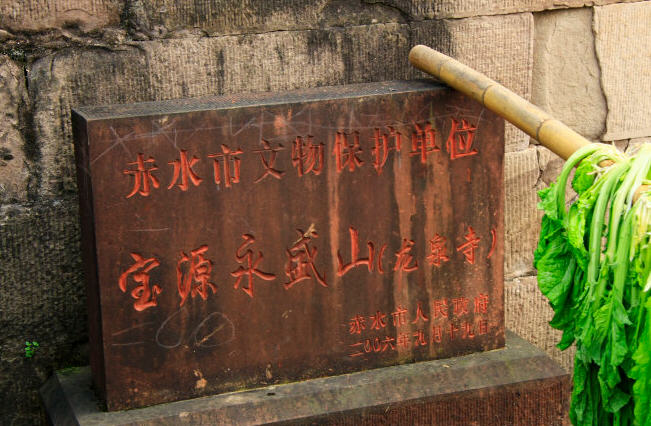 赤水市文物保护单位
宝源永盛山(龙泉寺)
赤水市人民政府
二00六年九月十九日